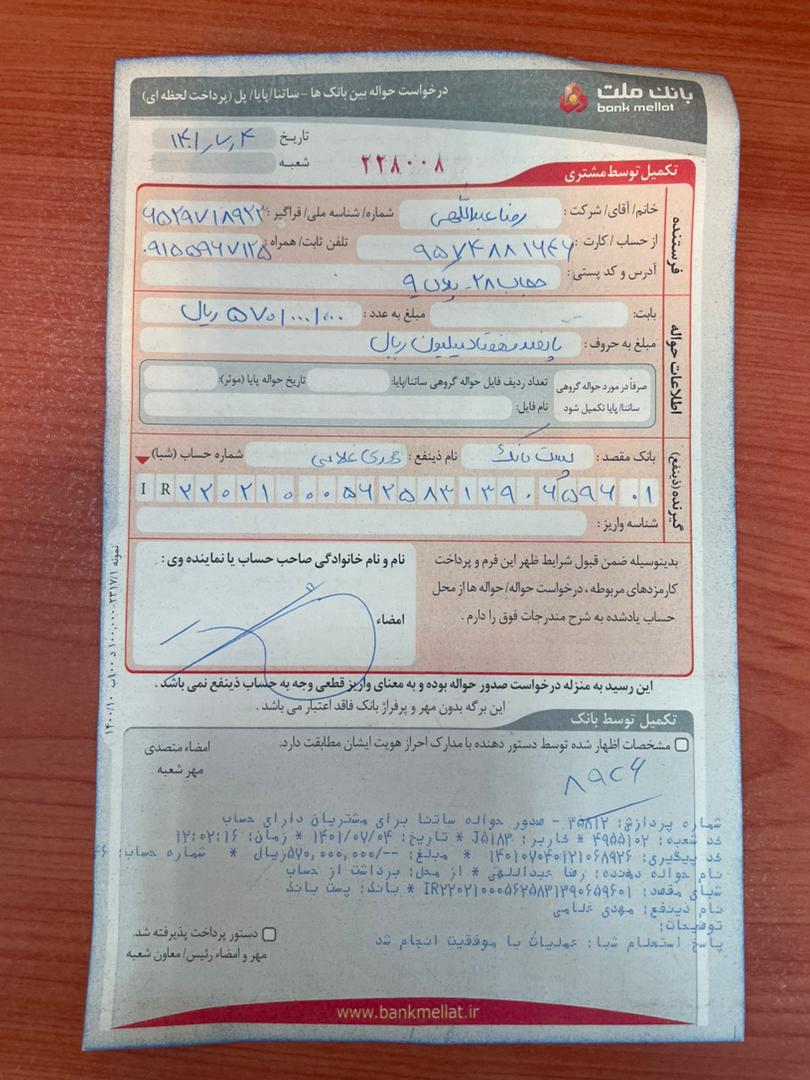 بانک ملت
bank mellat
درخواست حواله بین بانک ها - ساتنا/پایا/ پل (پرداخت لحظه ای)
تاریخ
شعبه :
۲۲۸۰۰۸
تکمیل توسط مشتری
فرستنده
خانم/ آقای/ شرکت : رضا عبداللهی شماره/ شناسه ملی/ فراگیر :
از حساب / کارت : ۹۵۷۴۸۸۱۶۴۶ تلفن ثابت/ همراه : ۰۹۱۵۵۹۶۷۱۲۵
آدرس و کد پستی : حجاب ۲۸ - پلاک ۹
اطلاعات حواله
بابت : مبلغ به عدد : ۵۷۰/۰۰۰/۰۰۰ ریال
مبلغ به حروف : پانصد و هفتاد میلیون ریال
صرفاً در مورد حواله گروهی ساتنا/پایا تکمیل شود
تعداد ردیف فایل حواله گروهی ساتنا/پایا: تاریخ حواله پایا (موثر):
نام فایل:
گیرنده (ذینفع)
بانک مقصد : پست بانک نام ذینفع : مهدی غلامی شماره حساب (شبا)
I R ۲۲۰۲۱۰۰۰۵۶۲۵۸۳۱۳۹۰۶۵۹۶۰۱
شناسه واریز :
بدینوسیله ضمن قبول شرایط ظهر این فرم و پرداخت
کارمزدهای مربوطه ، درخواست حواله/ حواله ها از محل
حساب یادشده به شرح مندرجات فوق را دارم .
نام و نام خانوادگی صاحب حساب یا نماینده وی :
امضاء
این رسید به منزله درخواست صدور حواله بوده و به معنای واریز قطعی وجه به حساب ذینفع نمی باشد .
این برگه بدون مهر و پرفراژ بانک فاقد اعتبار می باشد .
تکمیل توسط بانک
مشخصات اظهار شده توسط دستور دهنده با مدارک احراز هویت ایشان مطابقت دارد.
امضاء متصدی
مهر شعبه
شماره پردازش: ۳۵۸۱۲ - صدور حواله ساتنا برای مشتریان دارای حساب
کد شعبه: ۴۹۵۵۱۰۲ * کاربر: J۵۱۸۳ * تاریخ: ۱۴۰۱/۰۷/۰۴ * زمان: ۱۲:۰۲:۱۶
کد پیگیری: ۱۴۰۱۰۷۰۴۰۱۲۱۰۶۸۹۲۶ * مبلغ: --/۵۷۰,۰۰۰,۰۰۰ریال * شماره حساب:
نام حواله دهنده: رضا عبداللهی * از محل: برداشت از حساب
شبای مقصد: IR۲۲۰۲۱۰۰۰۵۶۲۵۸۳۱۳۹۰۶۵۹۶۰۱ * بانک: پست بانک
نام ذینفع: مهدی غلامی
توضیحات:
پاسخ استعلام شبا: عملیات با موفقیت انجام شد
دستور پرداخت پذیرفته شد.
مهر و امضاء رئیس/ معاون شعبه
www.bankmellat.ir